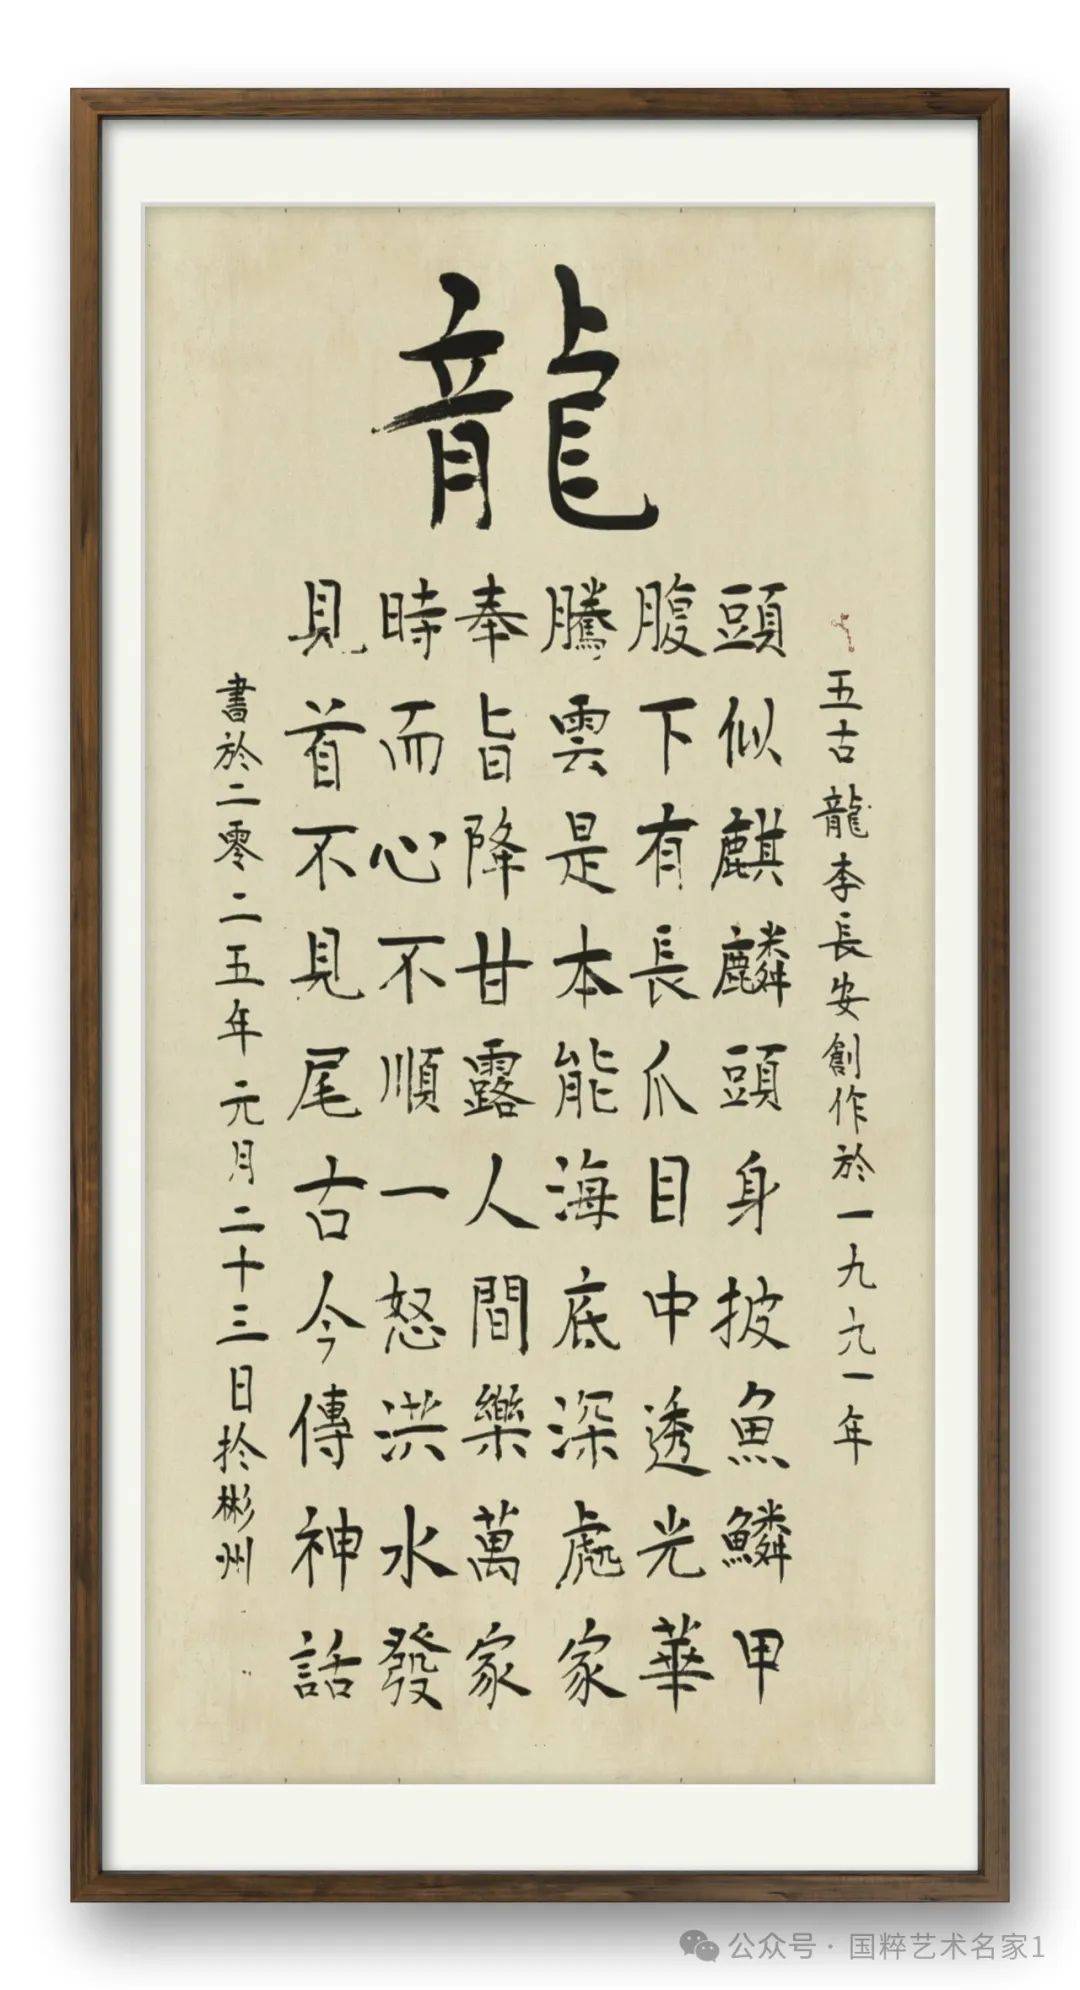 龍
五古龍李長安創作於一九六一年
頭似麒麟頭身披魚鱗甲
腹下有長爪目中透光華
騰雲是本能海底深處家
奉旨降甘露人間樂萬家
時而心不順一怒洪水發
見首不見尾古今傳神話
書於二零二五年元月二十三日於彬州
公众号·国粹艺术名家1